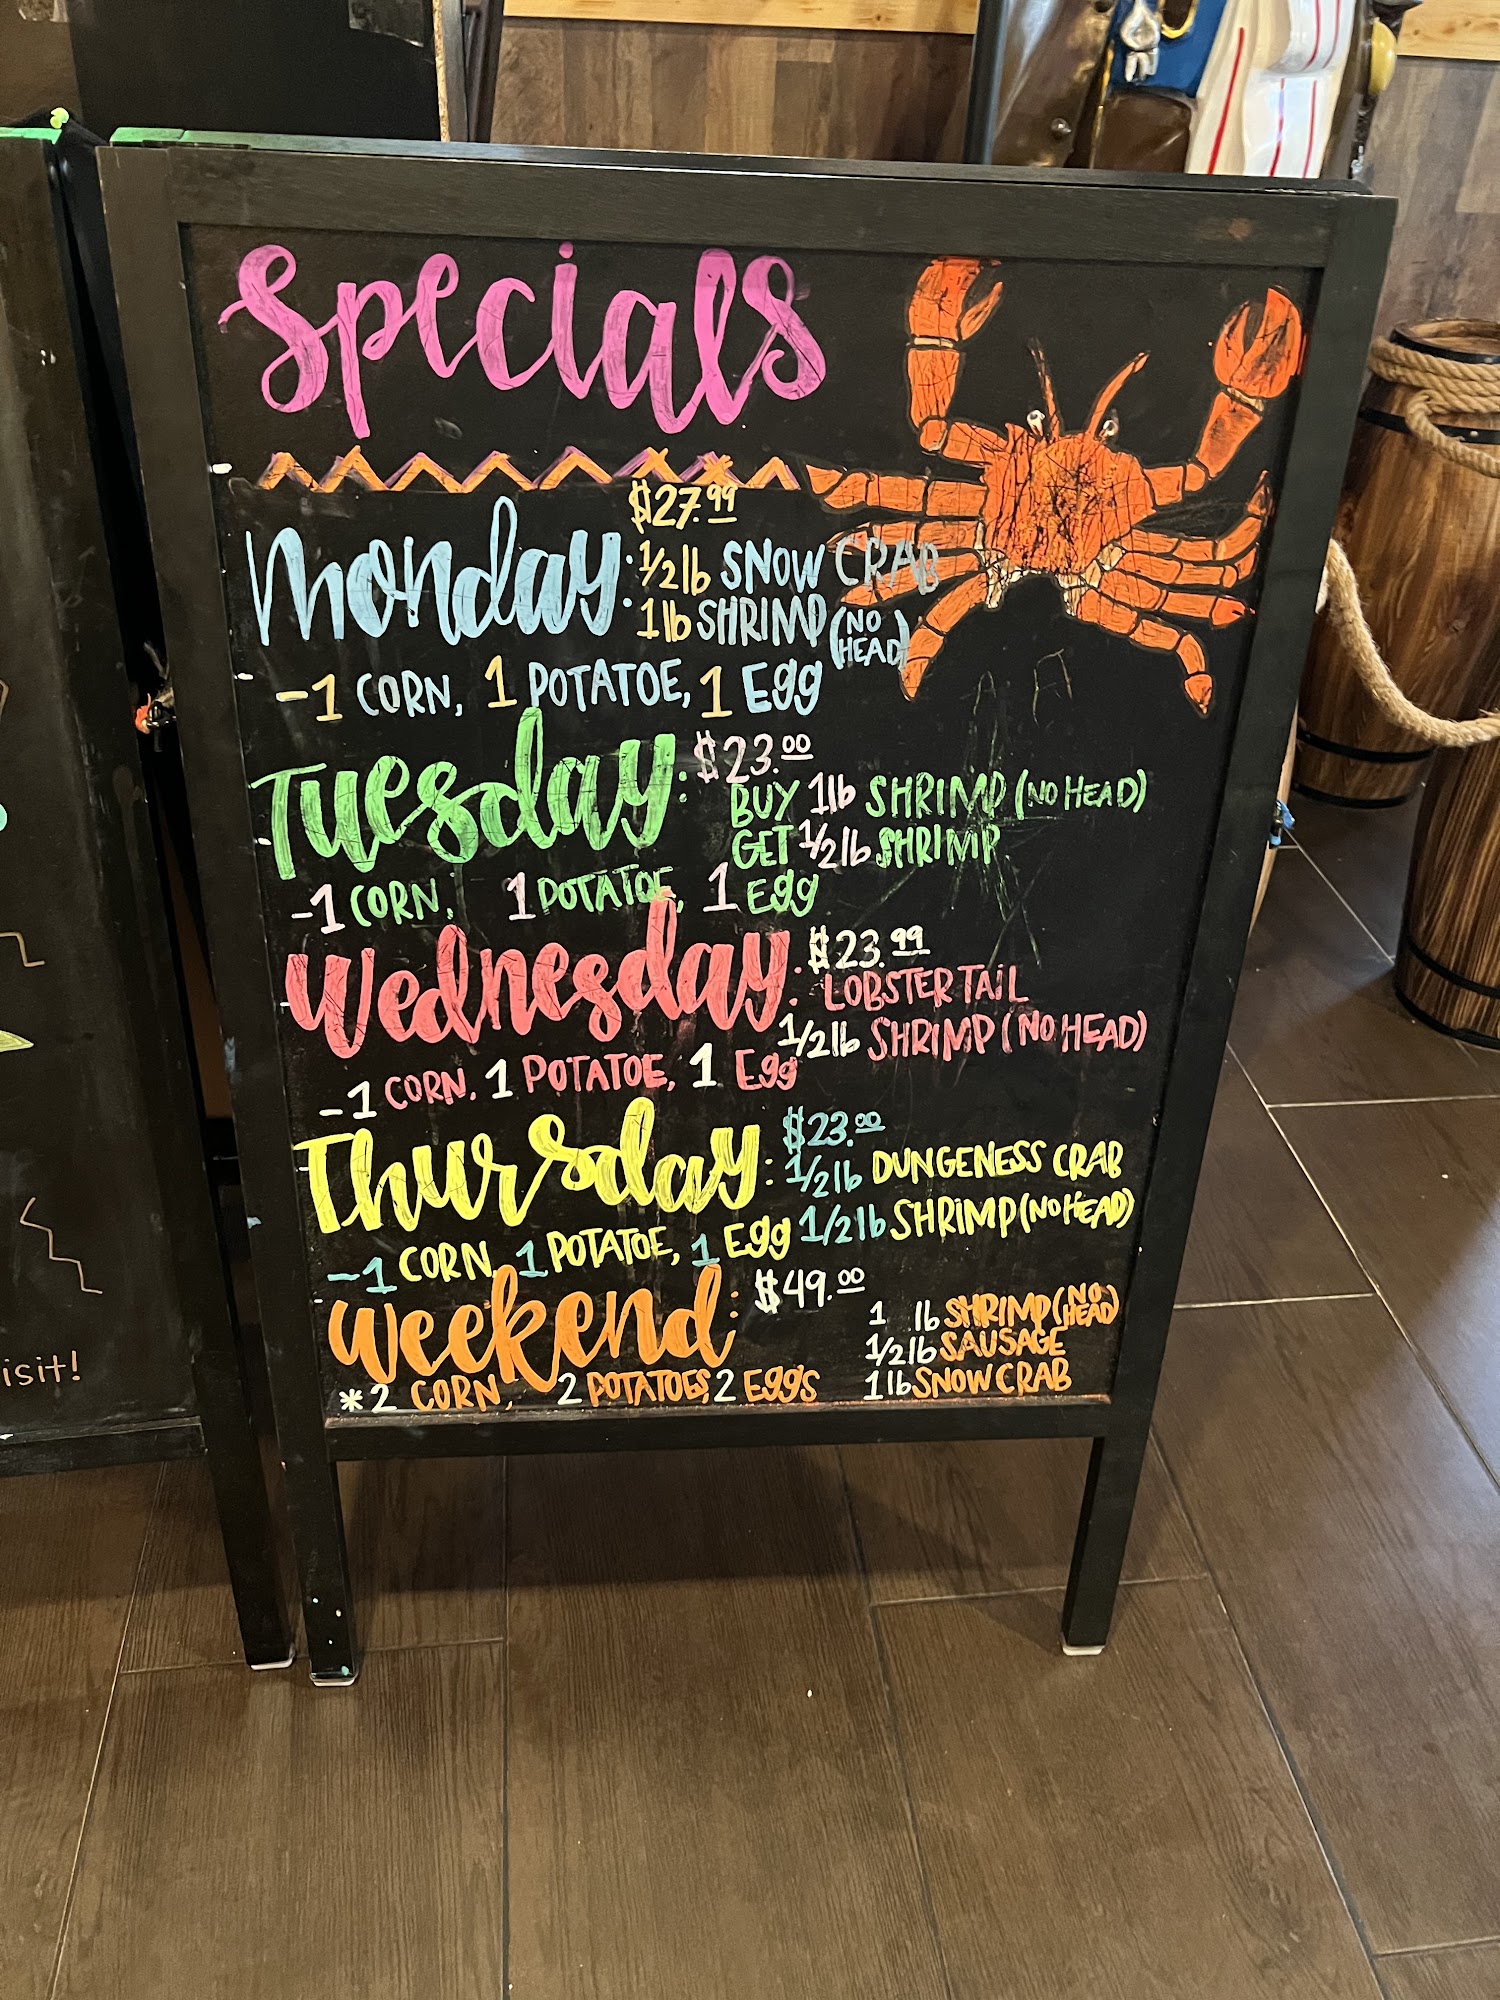 Specials
$27.99
Monday: 1/2lb SNOW CRAB
1lb SHRIMP (NO HEAD)
-1 CORN, 1 POTATOE, 1 Egg
Tuesday: $23.00
BUY 1lb SHRIMP (NO HEAD)
GET 1/2lb SHRIMP
-1 CORN, 1 POTATOE, 1 Egg
Wednesday: $23.99
LOBSTER TAIL
1/2lb SHRIMP (NO HEAD)
-1 CORN, 1 POTATOE, 1 Egg
Thursday: $23.00
1/2lb DUNGENESS CRAB
1/2lb SHRIMP (NO HEAD)
-1 CORN, 1 POTATOE, 1 Egg
Weekend: $49.00
1 lb SHRIMP (NO HEAD)
1/2lb SAUSAGE
1lb SNOW CRAB
*2 CORN, 2 POTATOES, 2 Eggs
isit!